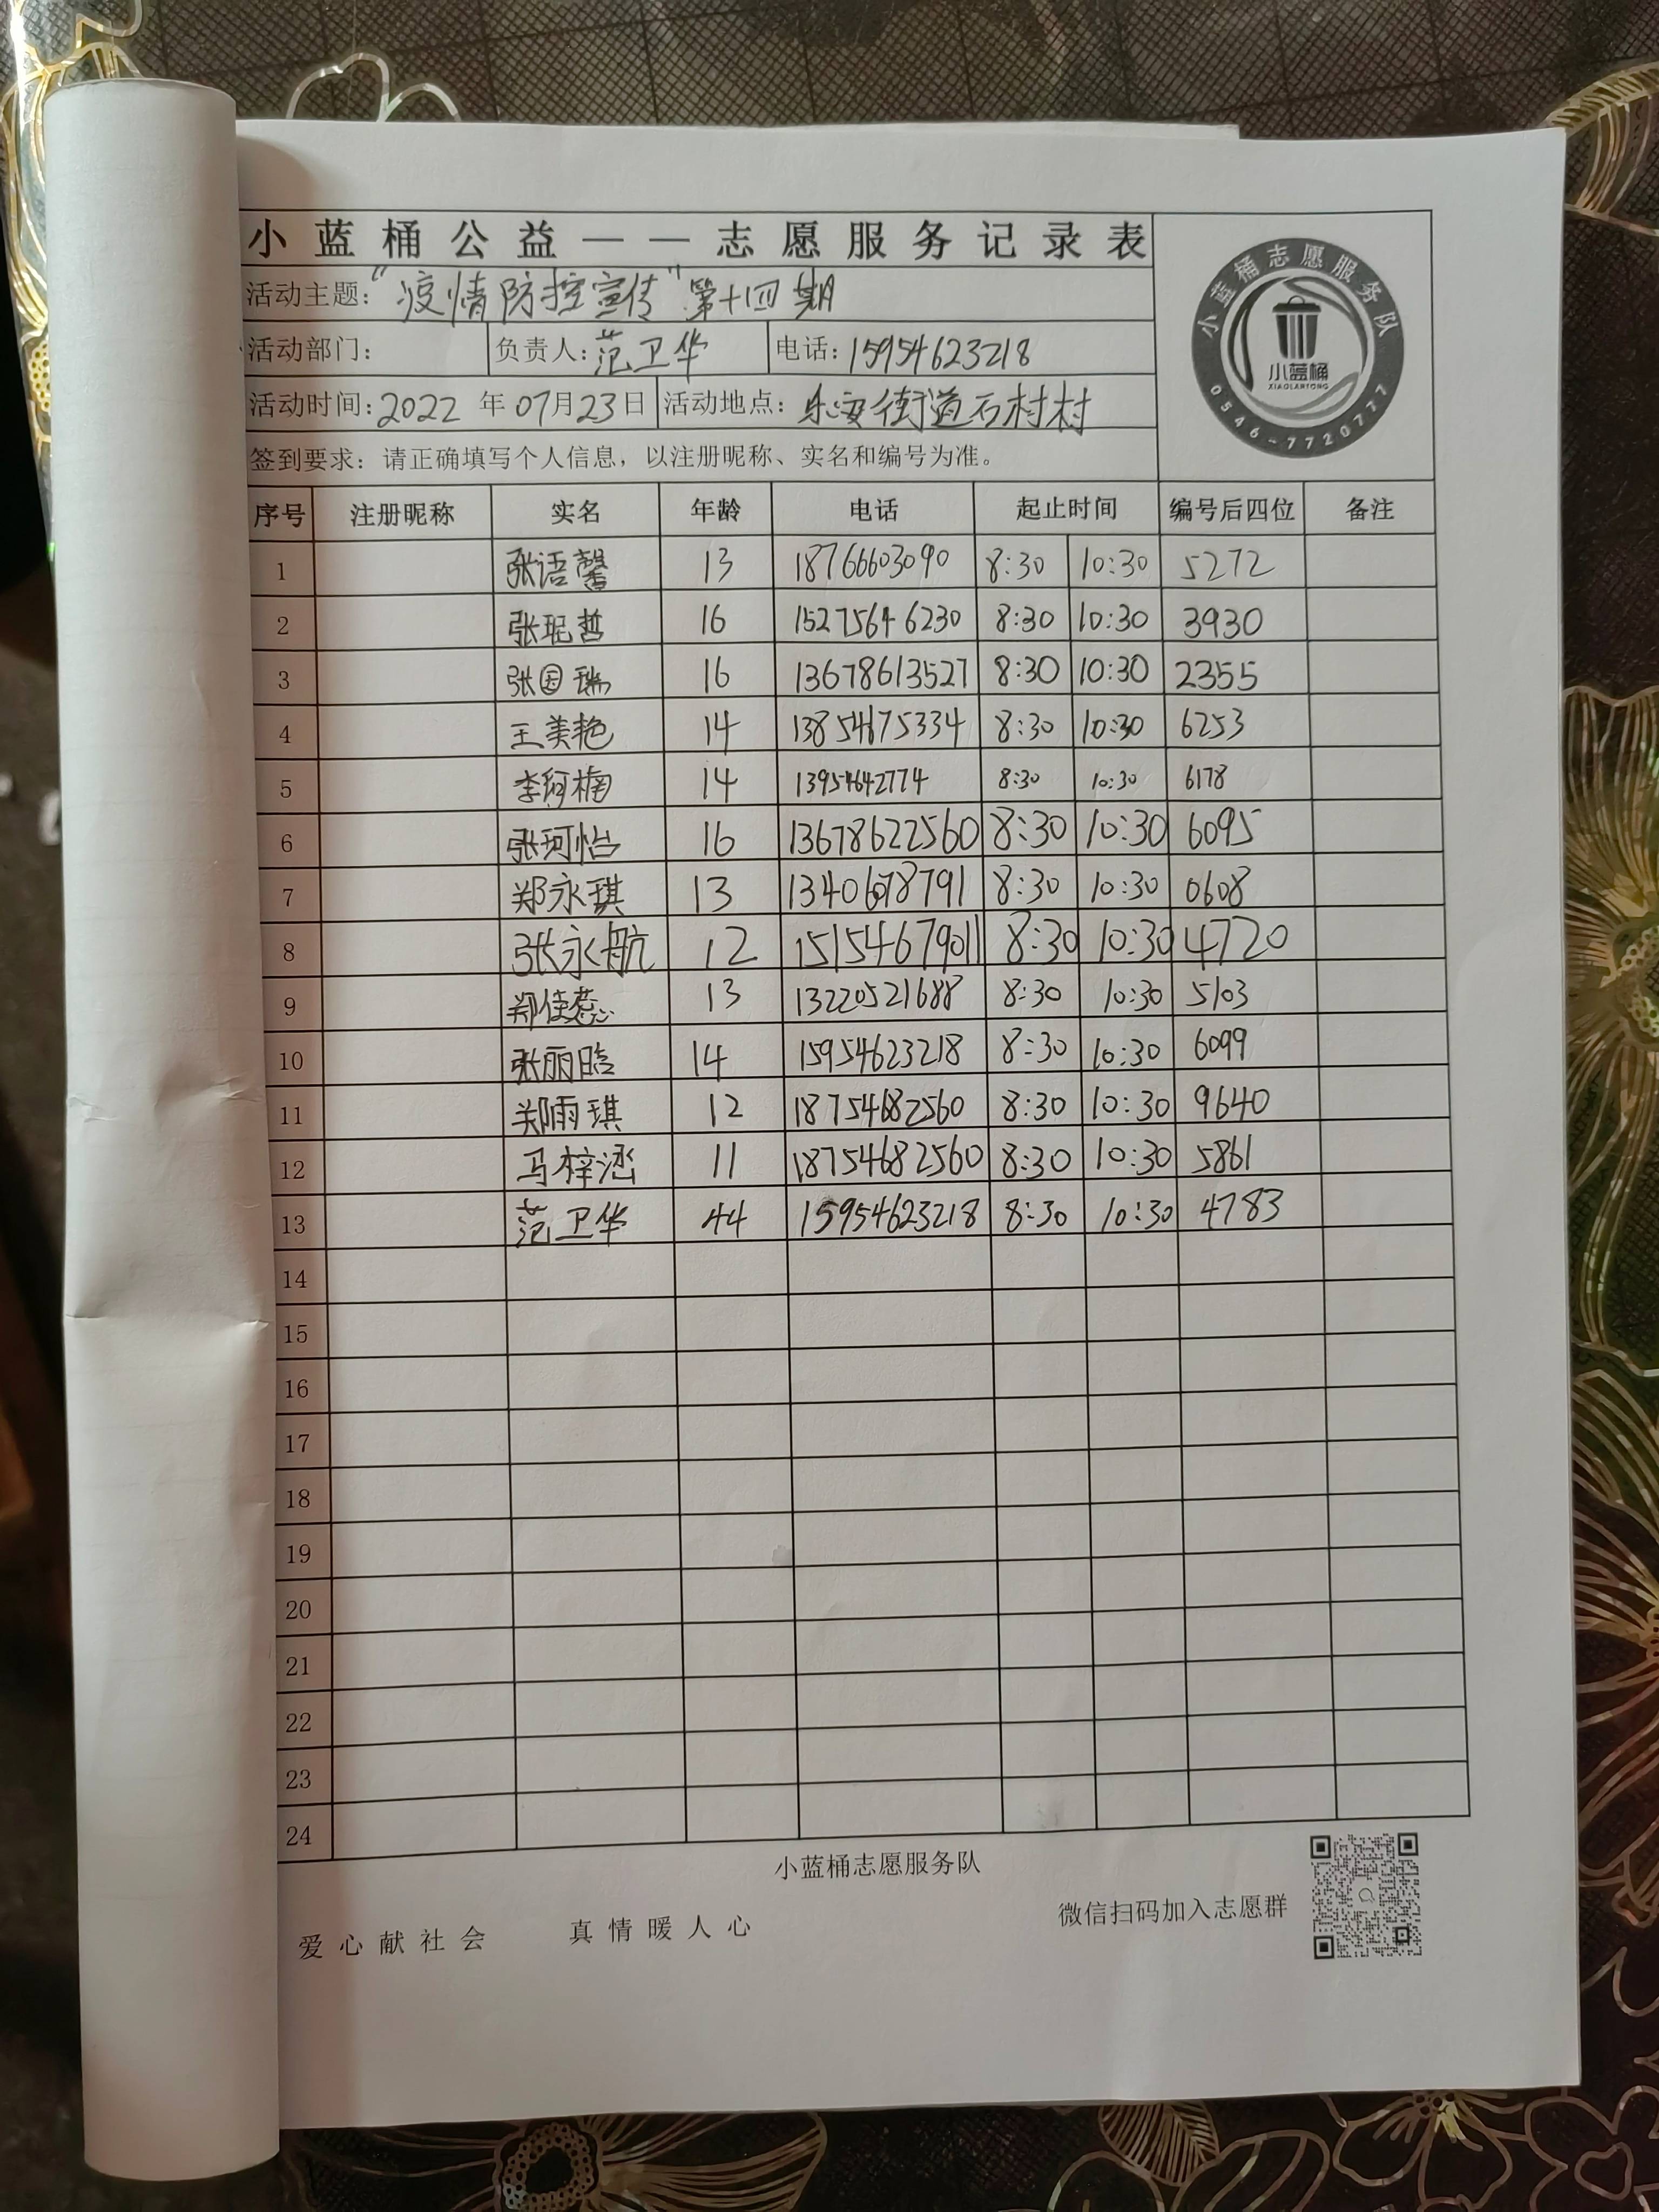 小蓝桶公益——志愿服务记录表
活动主题：“疫情防控宣传”第十四期
活动部门： 负责人：范卫华 电话：15954623218
活动时间：2022 年 07月23日 活动地点：乐安街道石村村
签到要求：请正确填写个人信息，以注册昵称、实名和编号为准。
小蓝桶志愿服务队
小蓝桶
XIAOLANTONG
0546-7720777
序号 注册昵称 实名 年龄 电话 起止时间 编号后四位 备注
1 张语馨 13 18766603090 8:30 10:30 5272
2 张珽哲 16 15275646230 8:30 10:30 3930
3 张国瑞 16 13678613527 8:30 10:30 2355
4 王美艳 14 13854675334 8:30 10:30 6253
5 李珂楠 14 13954642774 8:30 10:30 6178
6 张珂怡 16 13678622560 8:30 10:30 6095
7 郑永琪 13 13406078791 8:30 10:30 0608
8 张永航 12 15154679011 8:30 10:30 4720
9 郑佳蕊 13 13220521688 8:30 10:30 5103
10 张丽晗 14 15954623218 8:30 10:30 6099
11 郑雨琪 12 18754682560 8:30 10:30 9640
12 马梓涵 11 18754682560 8:30 10:30 5861
13 范卫华 44 15954623218 8:30 10:30 4783
14
15
16
17
18
19
20
21
22
23
24
小蓝桶志愿服务队
爱心献社会 真情暖人心 微信扫码加入志愿群